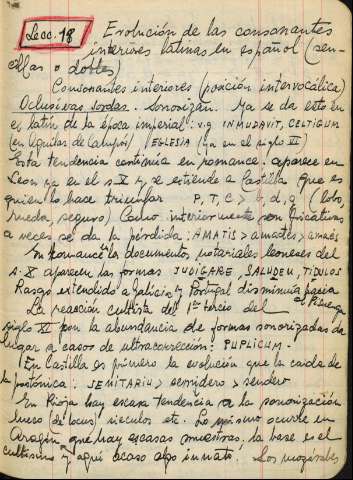 Lecc. 18
Evolución de las consonantes
interiores latinas en español (sen-
cillas o dobles)
Consonantes interiores (posición intervocálica)
Oclusivas sordas. Sonorizan. Ya se da esto en
el latín de la época imperial: v.g INMUDAVIT, CELTIGUM
(en lápidas de ) / EGLESIA (ya en el siglo VI)
Esta tendencia continúa en romance. aparece en
León ya en el s X y se extiende a Castilla que es
quien lo hace triunfar P, T, C > b, d, g (lobo,
rueda, seguro) Como interiormente son fricativas
a veces se da la pérdida: AMATIS > amades > amáis
En romance los documentos notariales leoneses del
s. X aparecen las formas JUDIGARE, SALUDEM, TIDULOS
Rasgo extendido a Galicia y Portugal disminuía hacia
La reacción cultista del 1er tercio del
siglo XI por la abundancia de formas sonorizadas da
lugar a casos de ultracorrección: PUPLICUM.
En Castilla es primero la evolución que la caída de
la postónica: SEMITARIU > semidero > sendero
En Rioja hay escasa tendencia a la sonorización
lueco (de locus) sieculos etc. Lo mismo ocurre en
Aragón que hay escasas muestras, la base es el
cultismo y aquí acaso algo innato. Los mozárabes